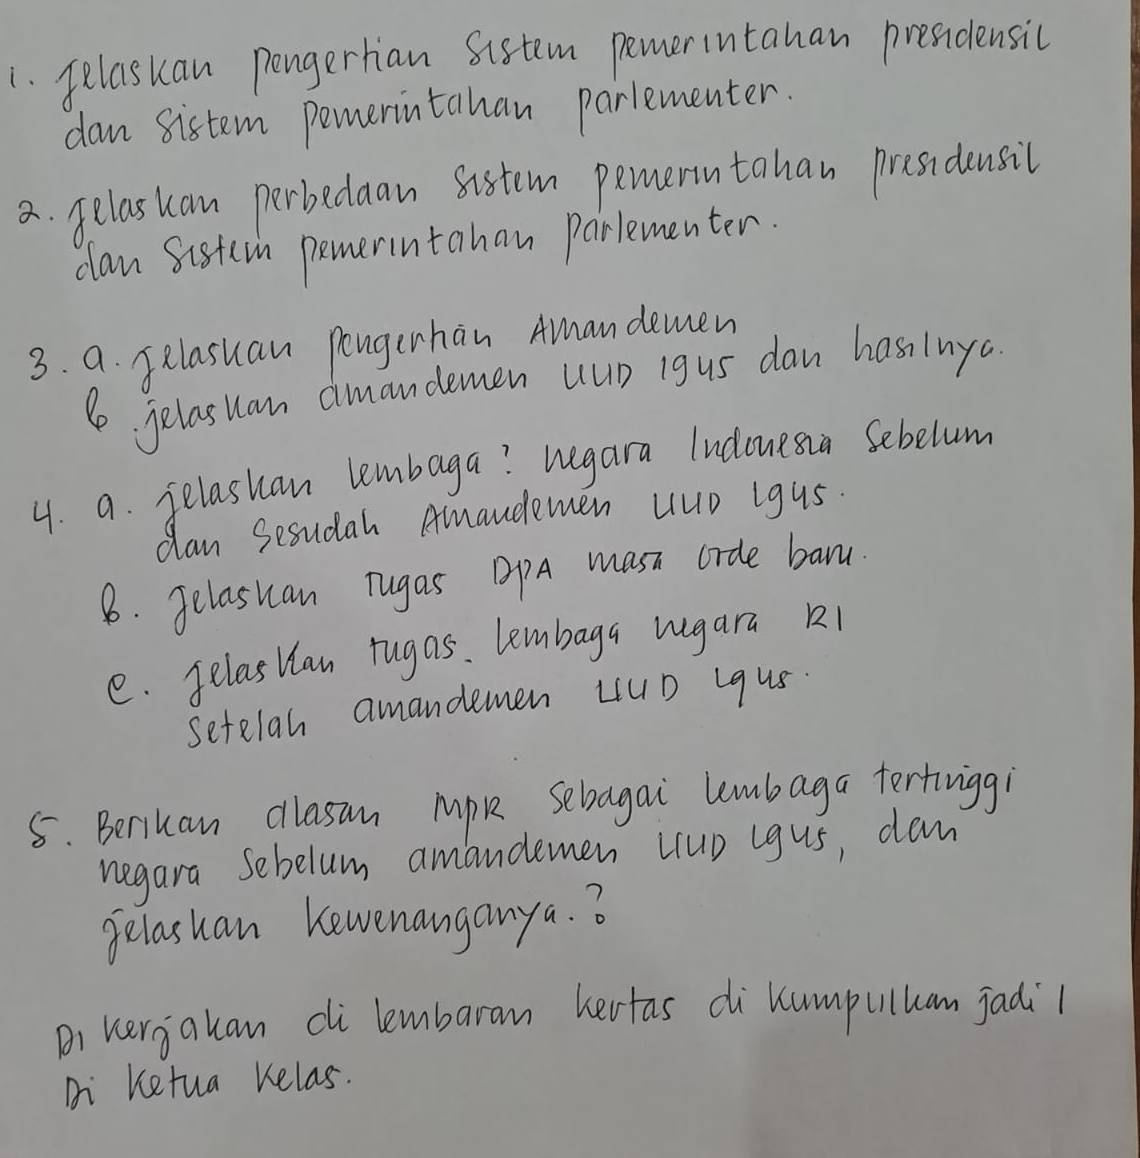 1. Jelaskan pengertian sistem pemerintahan presidensil
dan sistem pemerintahan parlementer.
2. Jelaskan perbedaan sistem pemerintahan presidensil
dan sistem pemerintahan parlementer.
3. a. Jelaskan pengertian Amandemen
b. jelaskan amandemen UUD 1945 dan hasilnya.
4. a. jelaskan lembaga? negara Indonesia sebelum
dan sesudah Amandemen UUD 1945.
B. Jelaskan Tugas DPA masa orde baru.
c. Jelaskan tugas. lembaga negara RI
setelah amandemen UUD 1945.
5. Berikan alasan MPR sebagai lembaga tertinggi
negara sebelum amandemen UUD 1945, dan
jelaskan kewenanganya.?
Di kerjakan di lembaran kertas di kumpulkan jadi 1
Di Ketua Kelas.